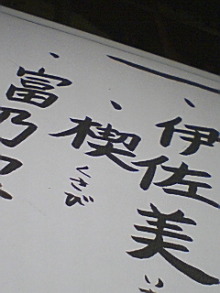 伊佐美
、楔
くさび
、富乃